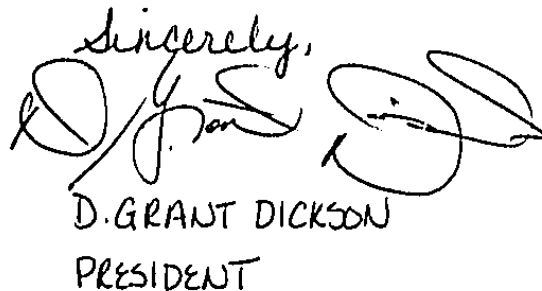 Sincerely,
D. Grant Dickson
D. GRANT DICKSON
PRESIDENT